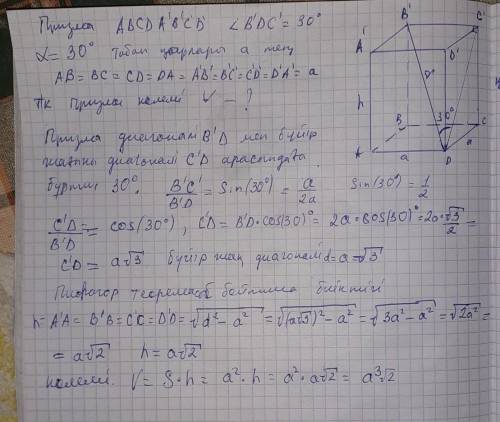 Призма ABCDA'B'C'D' ∠B'DC' = 30°
α = 30° табан қырлары a тең
AB = BC = CD = DA = A'B' = B'C' = C'D' = D'A' = a
Призма көлемі V — ?
Призма диагоналі B'D мен бүйір
жағының диагоналі C'D арасындағы
бұрыш 30°. B'C'/B'D = sin(30°) = a/2a sin(30°) = 1/2
C'D/B'D = cos(30°), C'D = B'D·cos(30)° = 2a·cos(30)° = 2a·√3/2 =
C'D = a√3 бүйір жақ диагоналі d = a√3
Пифагор теоремасы бойынша биіктігі
h = A'A = B'B = C'C = D'D = √(d² - a²) = √((a√3)² - a²) = √(3a² - a²) = √(2a²) =
= a√2 h = a√2
көлемі. V = S·h = a²·h = a²·a√2 = a³√2
B' C'
A' D'
h
30°
B C
A a D a